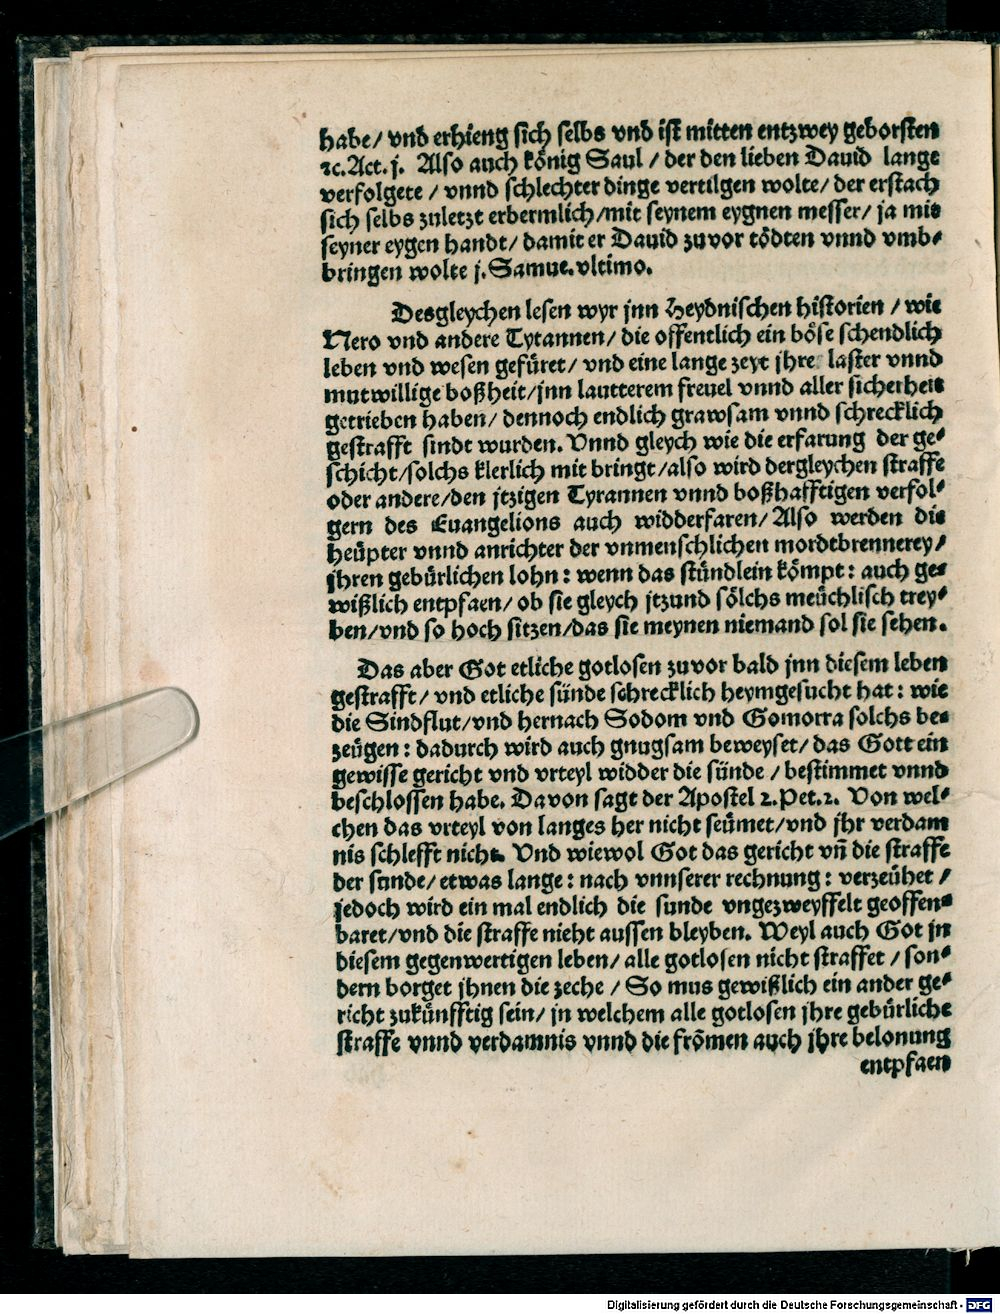 habe/ vnd erhieng sich selbs vnd ist mitten entzwey geborsten
ꝛc. Act. j. Also auch könig Saul / der den lieben Dauid lange
verfolgete / vnnd schlechter dinge vertilgen wolte/ der erstach
sich selbs zuletzt erbermlich/mit seynem eygnen messer/ ja mit
seyner eygen handt/ damit er Dauid zuvor tödten vnnd vmb⸗
bringen wolte j. Samue. vltimo.
Desgleychen lesen wyr jnn Heydnischen historien / wie
Nero vnd andere Tytannen/ die offentlich ein böse schendlich
leben vnd wesen gefüret/ vnd eine lange zeyt jhre laster vnnd
mutwillige boßheit/jnn lautterem freuel vnnd aller sicherheit
getrieben haben/ dennoch endlich grawsam vnnd schrecklich
gestrafft sindt wurden. Vnnd gleych wie die erfarung der ge⸗
schicht/solchs klerlich mit bringt/also wird dergleychen straffe
oder andere/den jtzigen Tyrannen vnnd boßhafftigen verfol⸗
gern des Euangelions auch widderfaren/ Also werden die
heüpter vnnd anrichter der vnmenschlichen mordtbrennerey/
jhren gebürlichen lohn: wenn das stündlein kömpt: auch ge⸗
wißlich entpfaen/ ob sie gleych jtzund sölchs meüchlisch trey⸗
ben/vnd so hoch sitzen/das sie meynen niemand sol sie sehen.
Das aber Got etliche gotlosen zuvor bald jnn diesem leben
gestrafft/ vnd etliche sünde schrecklich heymgesucht hat: wie
die Sindflut/vnd hernach Sodom vnd Gomorra solchs be⸗
zeügen: dadurch wird auch gnugsam beweyset/ das Gott ein
gewisse gericht vnd vrteyl widder die sünde / bestimmet vnnd
beschlossen habe. Davon sagt der Apostel 2. Pet. 2. Von wel⸗
chen das vrteyl von langes her nicht seümet/vnd jhr verdam
nis schlefft nicht. Vnd wiewol Got das gericht vñ die straffe
der sunde/ etwas lange: nach vnnserer rechnung: verzeühet /
jedoch wird ein mal endlich die sunde vngezweyffelt geoffen⸗
baret/vnd die straffe nicht aussen bleyben. Weyl auch Got jn
diesem gegenwertigen leben/ alle gotlosen nicht straffet / son⸗
dern borget jhnen die zeche / So mus gewißlich ein ander ge⸗
richt zukünfftig sein/ jn welchem alle gotlosen jhre gebürliche
straffe vnnd verdamnis vnnd die frömen auch jhre belonung
entpfaen
Digitalisierung gefördert durch die Deutsche Forschungsgemeinschaft - DFG